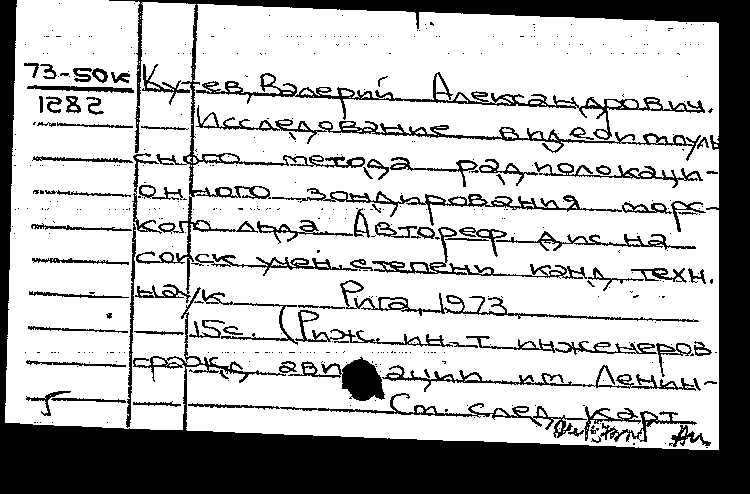 73-50к
1282
Кутев, Валерий Александрович.
Исследование видеоимпуль
сного метода радиолокаци-
онного зондирования морс-
кого льда Автореф. дис. на
соиск учен. степени канд. техн.
наук. Рига, 1973
15с. (Риж. ин-т инженеров
гражд. авиации им. Ленин-
См. след. карт
5